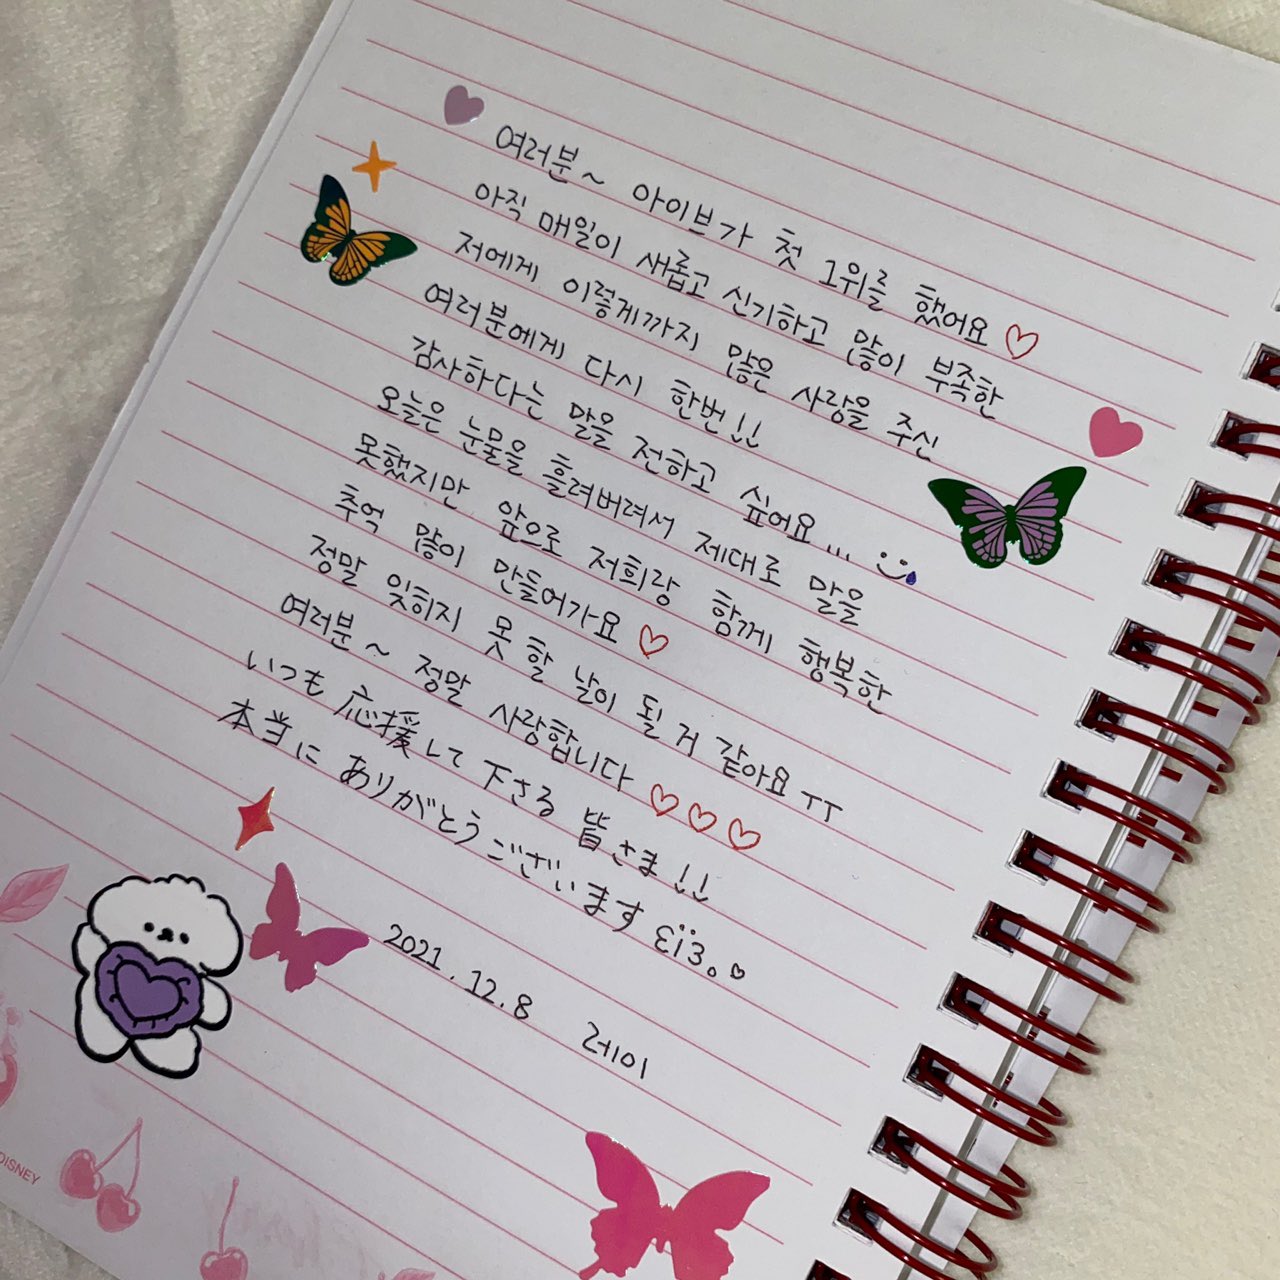 여러분~ 아이브가 첫 1위를 했어요 ♡
아직 매일이 새롭고 신기하고 많이 부족한
저에게 이렇게까지 많은 사랑을 주신
여러분에게 다시 한번!!
감사하다는 말을 전하고 싶어요...
오늘은 눈물을 흘려버려서 제대로 말을
못했지만 앞으로 저희랑 함께 행복한
추억 많이 만들어가요 ♡
정말 잊히지 못 할 날이 될 거 같아요 ㅜㅜ
여러분~ 정말 사랑합니다 ♡♡♡
いつも 応援して 下さる 皆さま!!
本当に ありがとうございます ૮ïз。♡
2021.12.8 레이
DISNEY